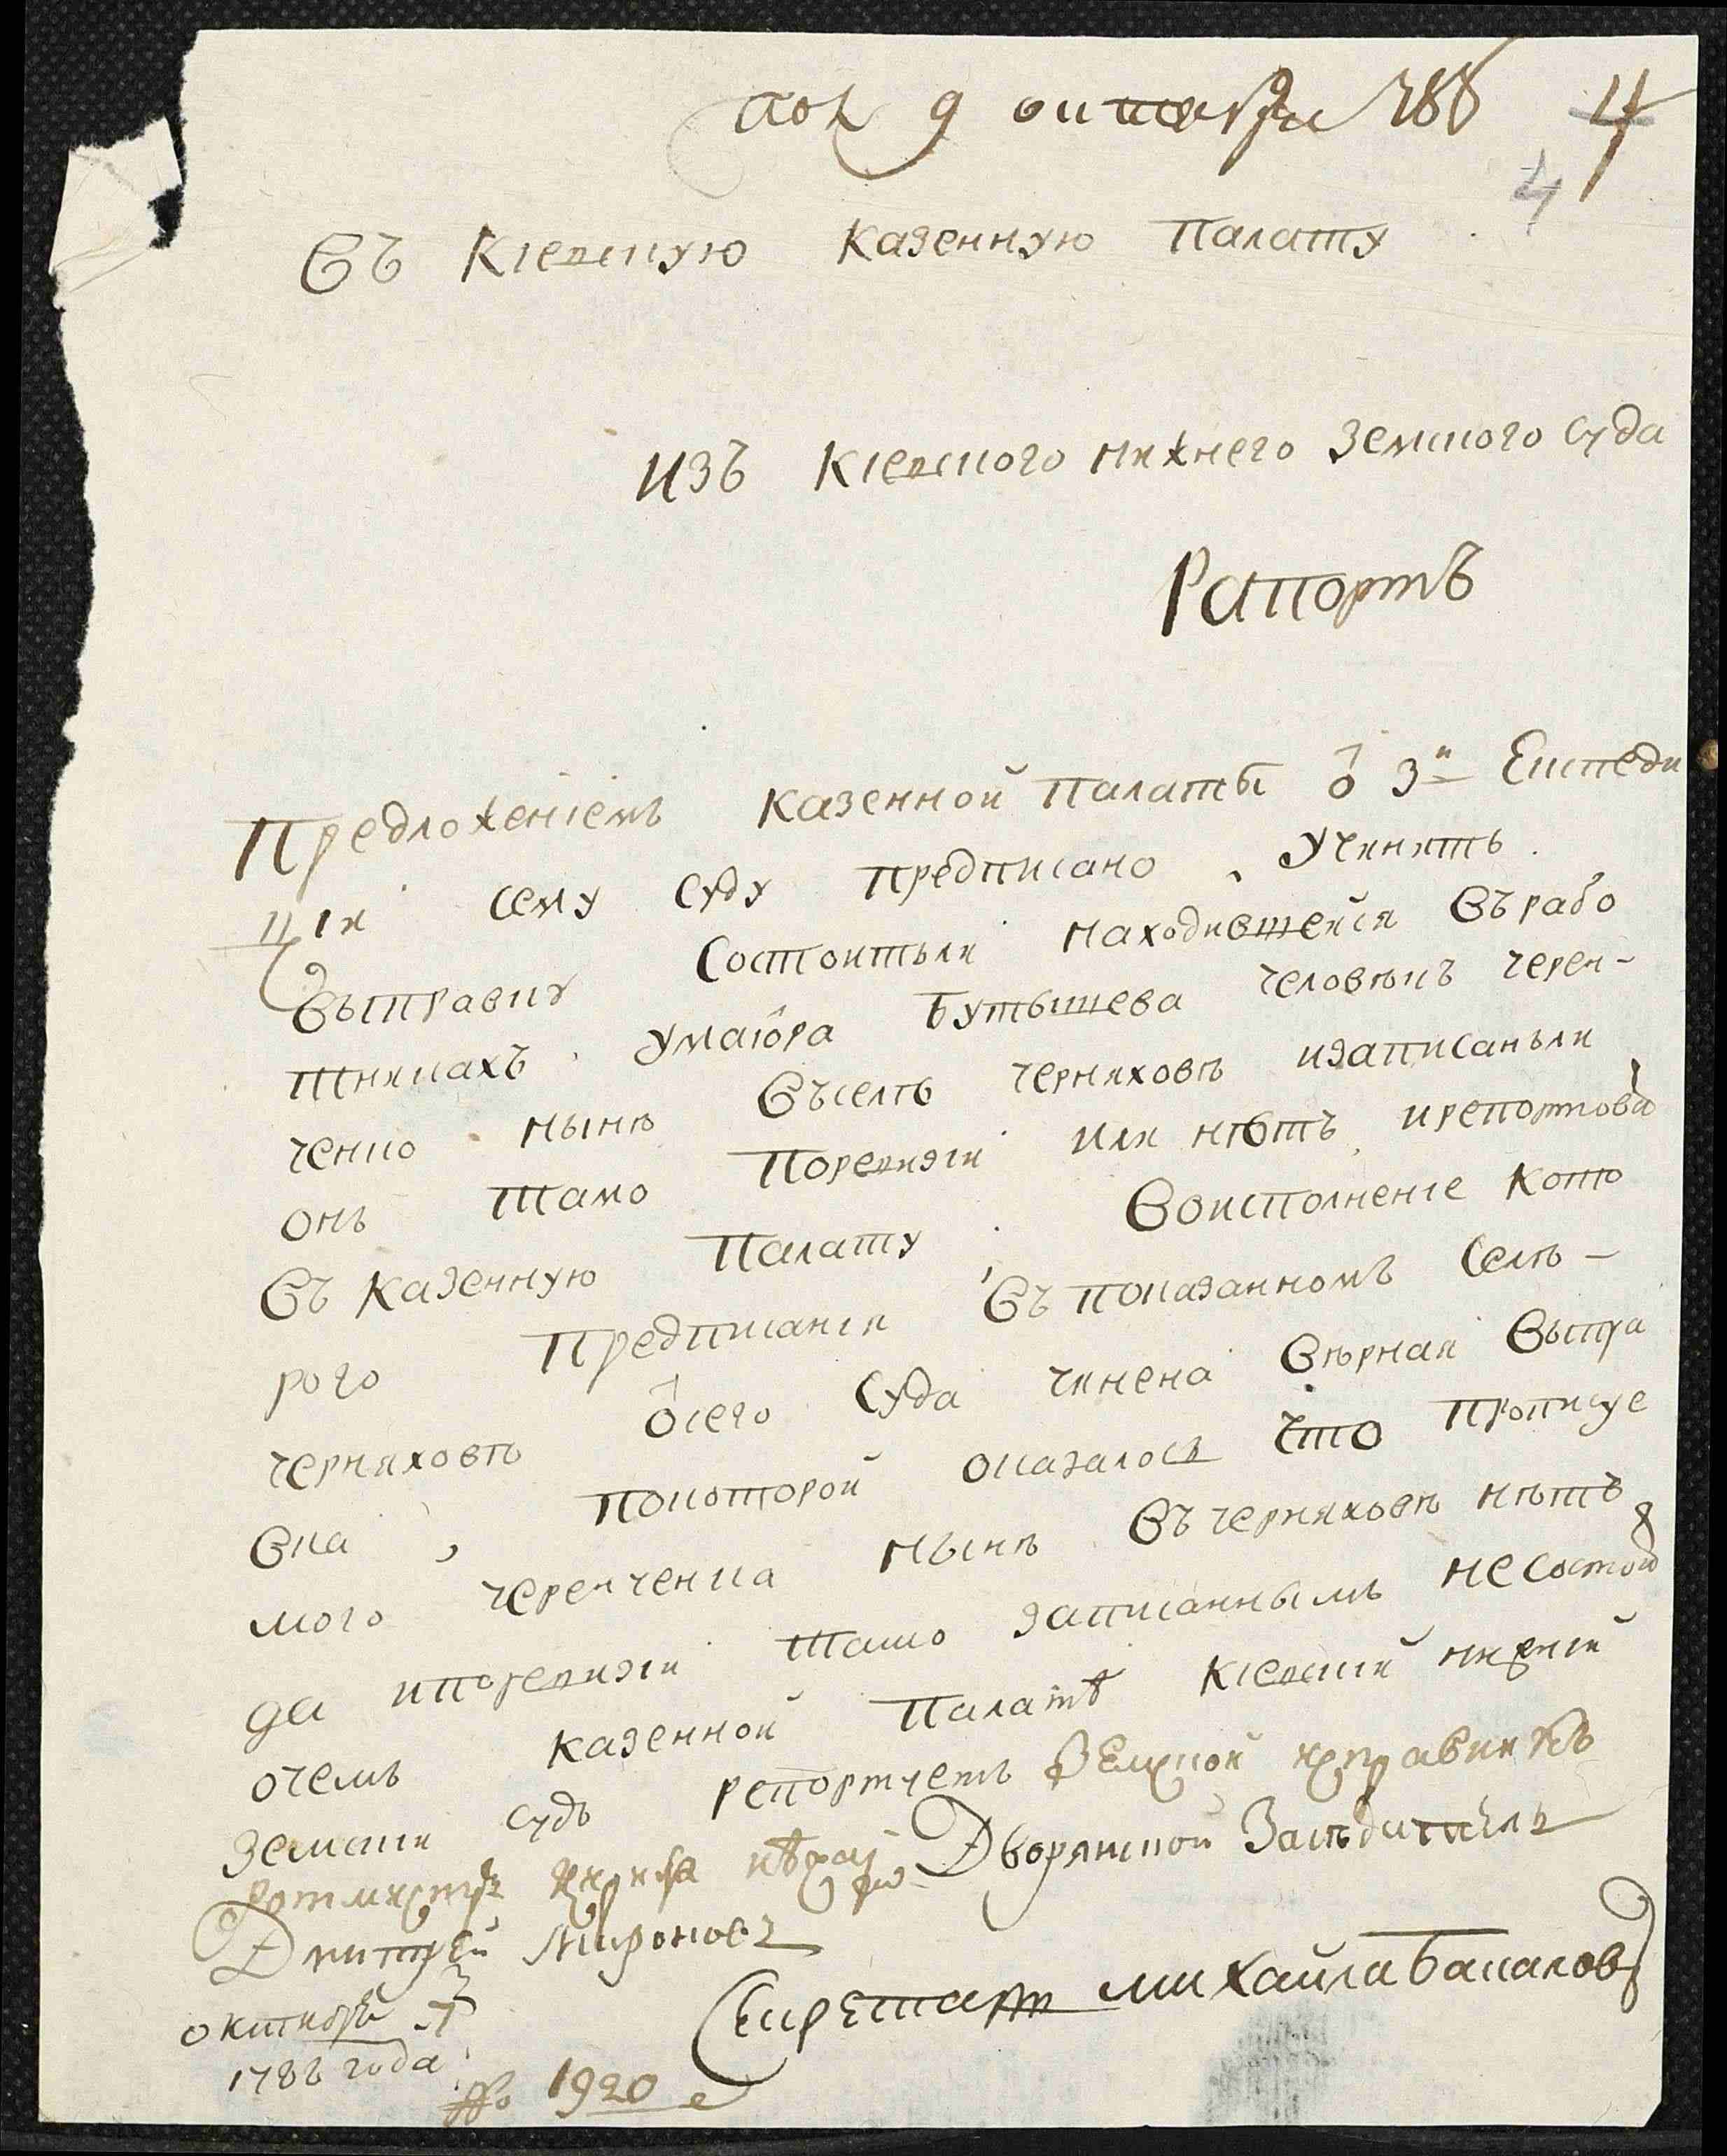 пол 9 октября 788 4
4
Въ Кіевскую казенную палату
изъ Кіевского нижнего земского суда
Рапортъ
Предложеніемъ казенной палаты ѿ 3й Експеди
ціи сему суду предписано, учинить
выправку состоитьли находившейся въ рабо
тникахъ умаіора Бутышева человѣкъ черен-
ченко нынѣ въселѣ черняховѣ изаписаньли
онъ тамо поревизіи или нѣтъ, ирепортова
въ казенную палату, воисполненіе кото
рого предписанія въ показанномъ селѣ -
черняховѣ ѿсего суда чинена вѣрная выпра
вка, покоторой оказалось что прописуе
мого черенченка нынѣ въ черняховѣ нѣтъ
да ипоревизіи тамо записаннымъ несостои
очемъ казенной палатѣ кіевскій нижній
земскій судъ репортуетъ Земской исправникъ
ротмистръ Дворянской Засѣдатель
Дмитрей Мироновъ
Секретарь михайла Бакаловъ
октября 7
1788 года
№ 1920